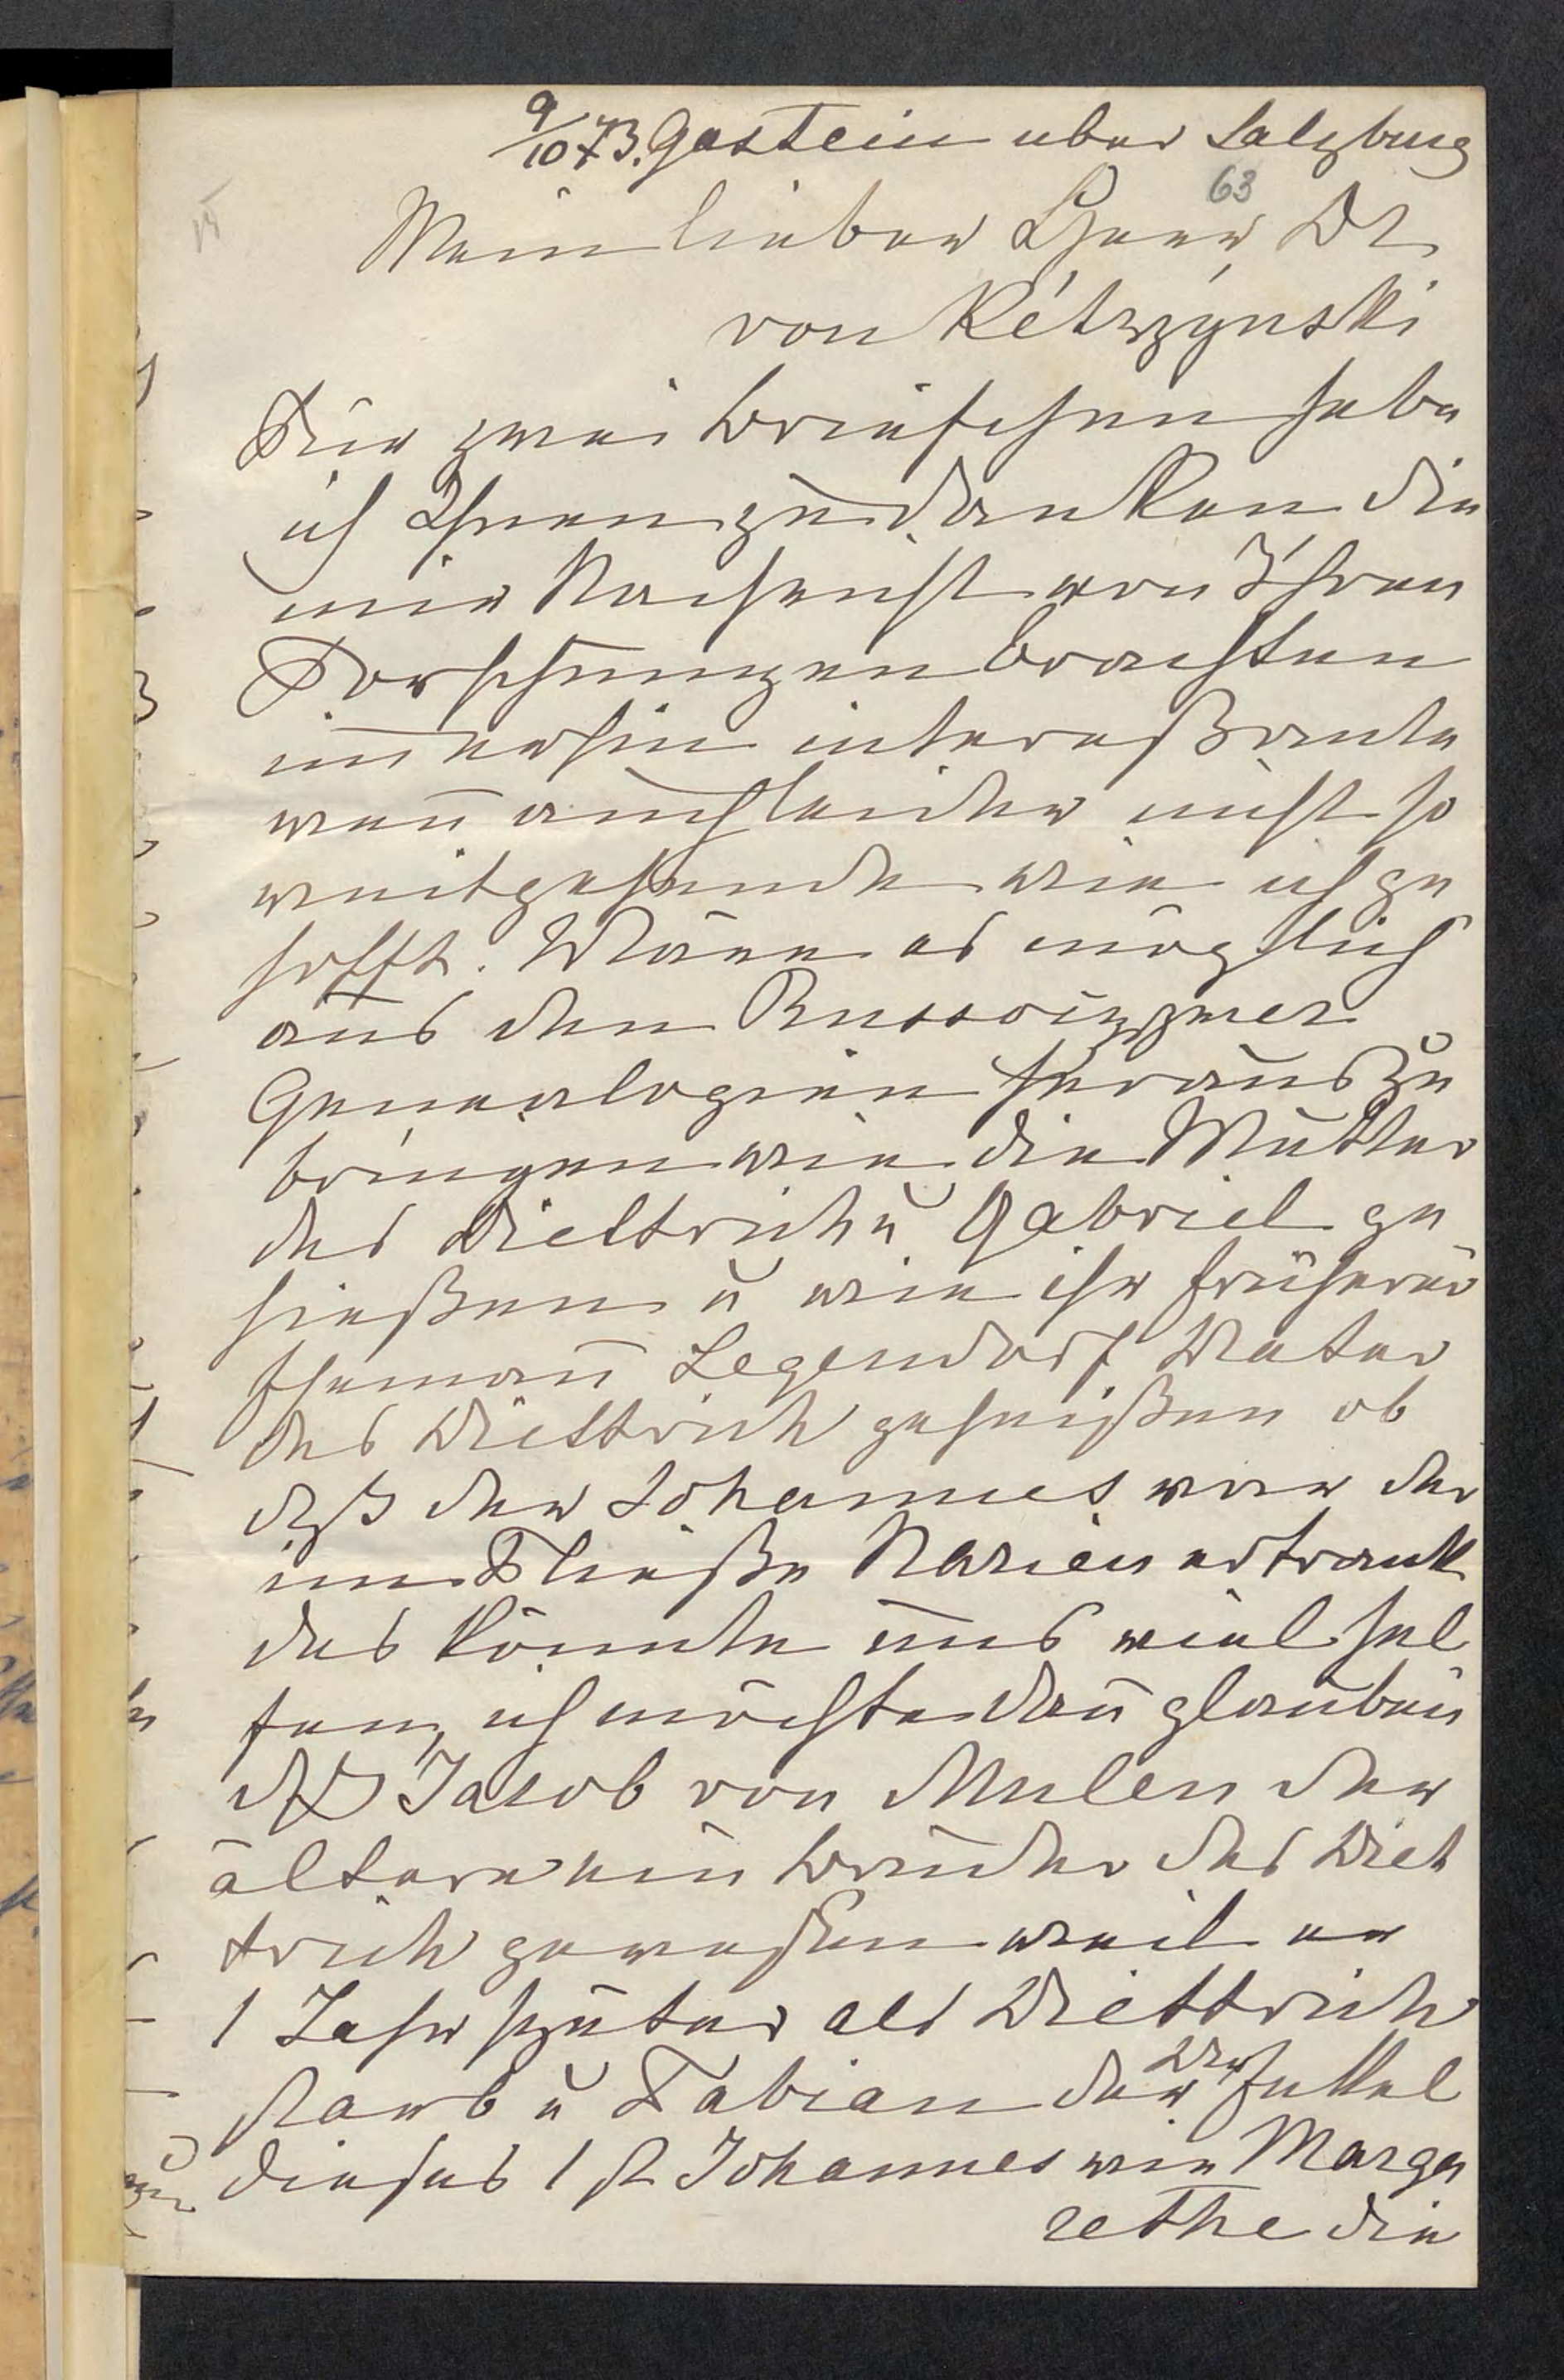 9/10 73. Gastein uber Salzburg
63
Mein lieber Herr Dr
von Kétrzýnski
Für zwei Briefchen habe
ich Ihnen zu danken die
mir Nachricht von Ihren
Forschungen brachten
im̄erhin intereßante
wen̄ auch leider nicht so
weitgehende wie ich ge
hofft. Wäre es möglich
aus den
Genealogien heraus zu
bringen wie die Mutter
des Diettrich u Gabriel ge
hießen u wie ihr früherer
Eheman̄ Legendorf Vater
des Diettrich geheißen ob
dß der Johannes war der
im Fließe Narien ertrank
das könnte uns viel hel
fen, ich möchte dan̄ glauben
dß Jacob von Mulen der
ältere ein Bruder des Diet
trich gewesen weil er
1 Jahr später als Diettrich
starb u Fabian der Uhr Enkel
dieses 1 st Johannes wie Marga
rethe die